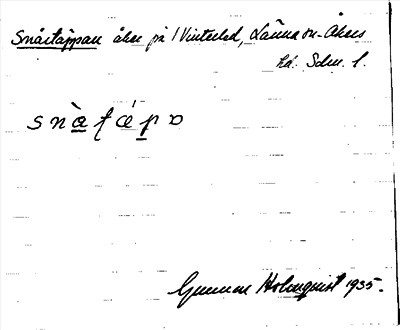 Snårtäppan åker på 1 Vinterled, Länna sn. Åkers
hd. Sdm. l.
Gunnar Holmquist 1935.